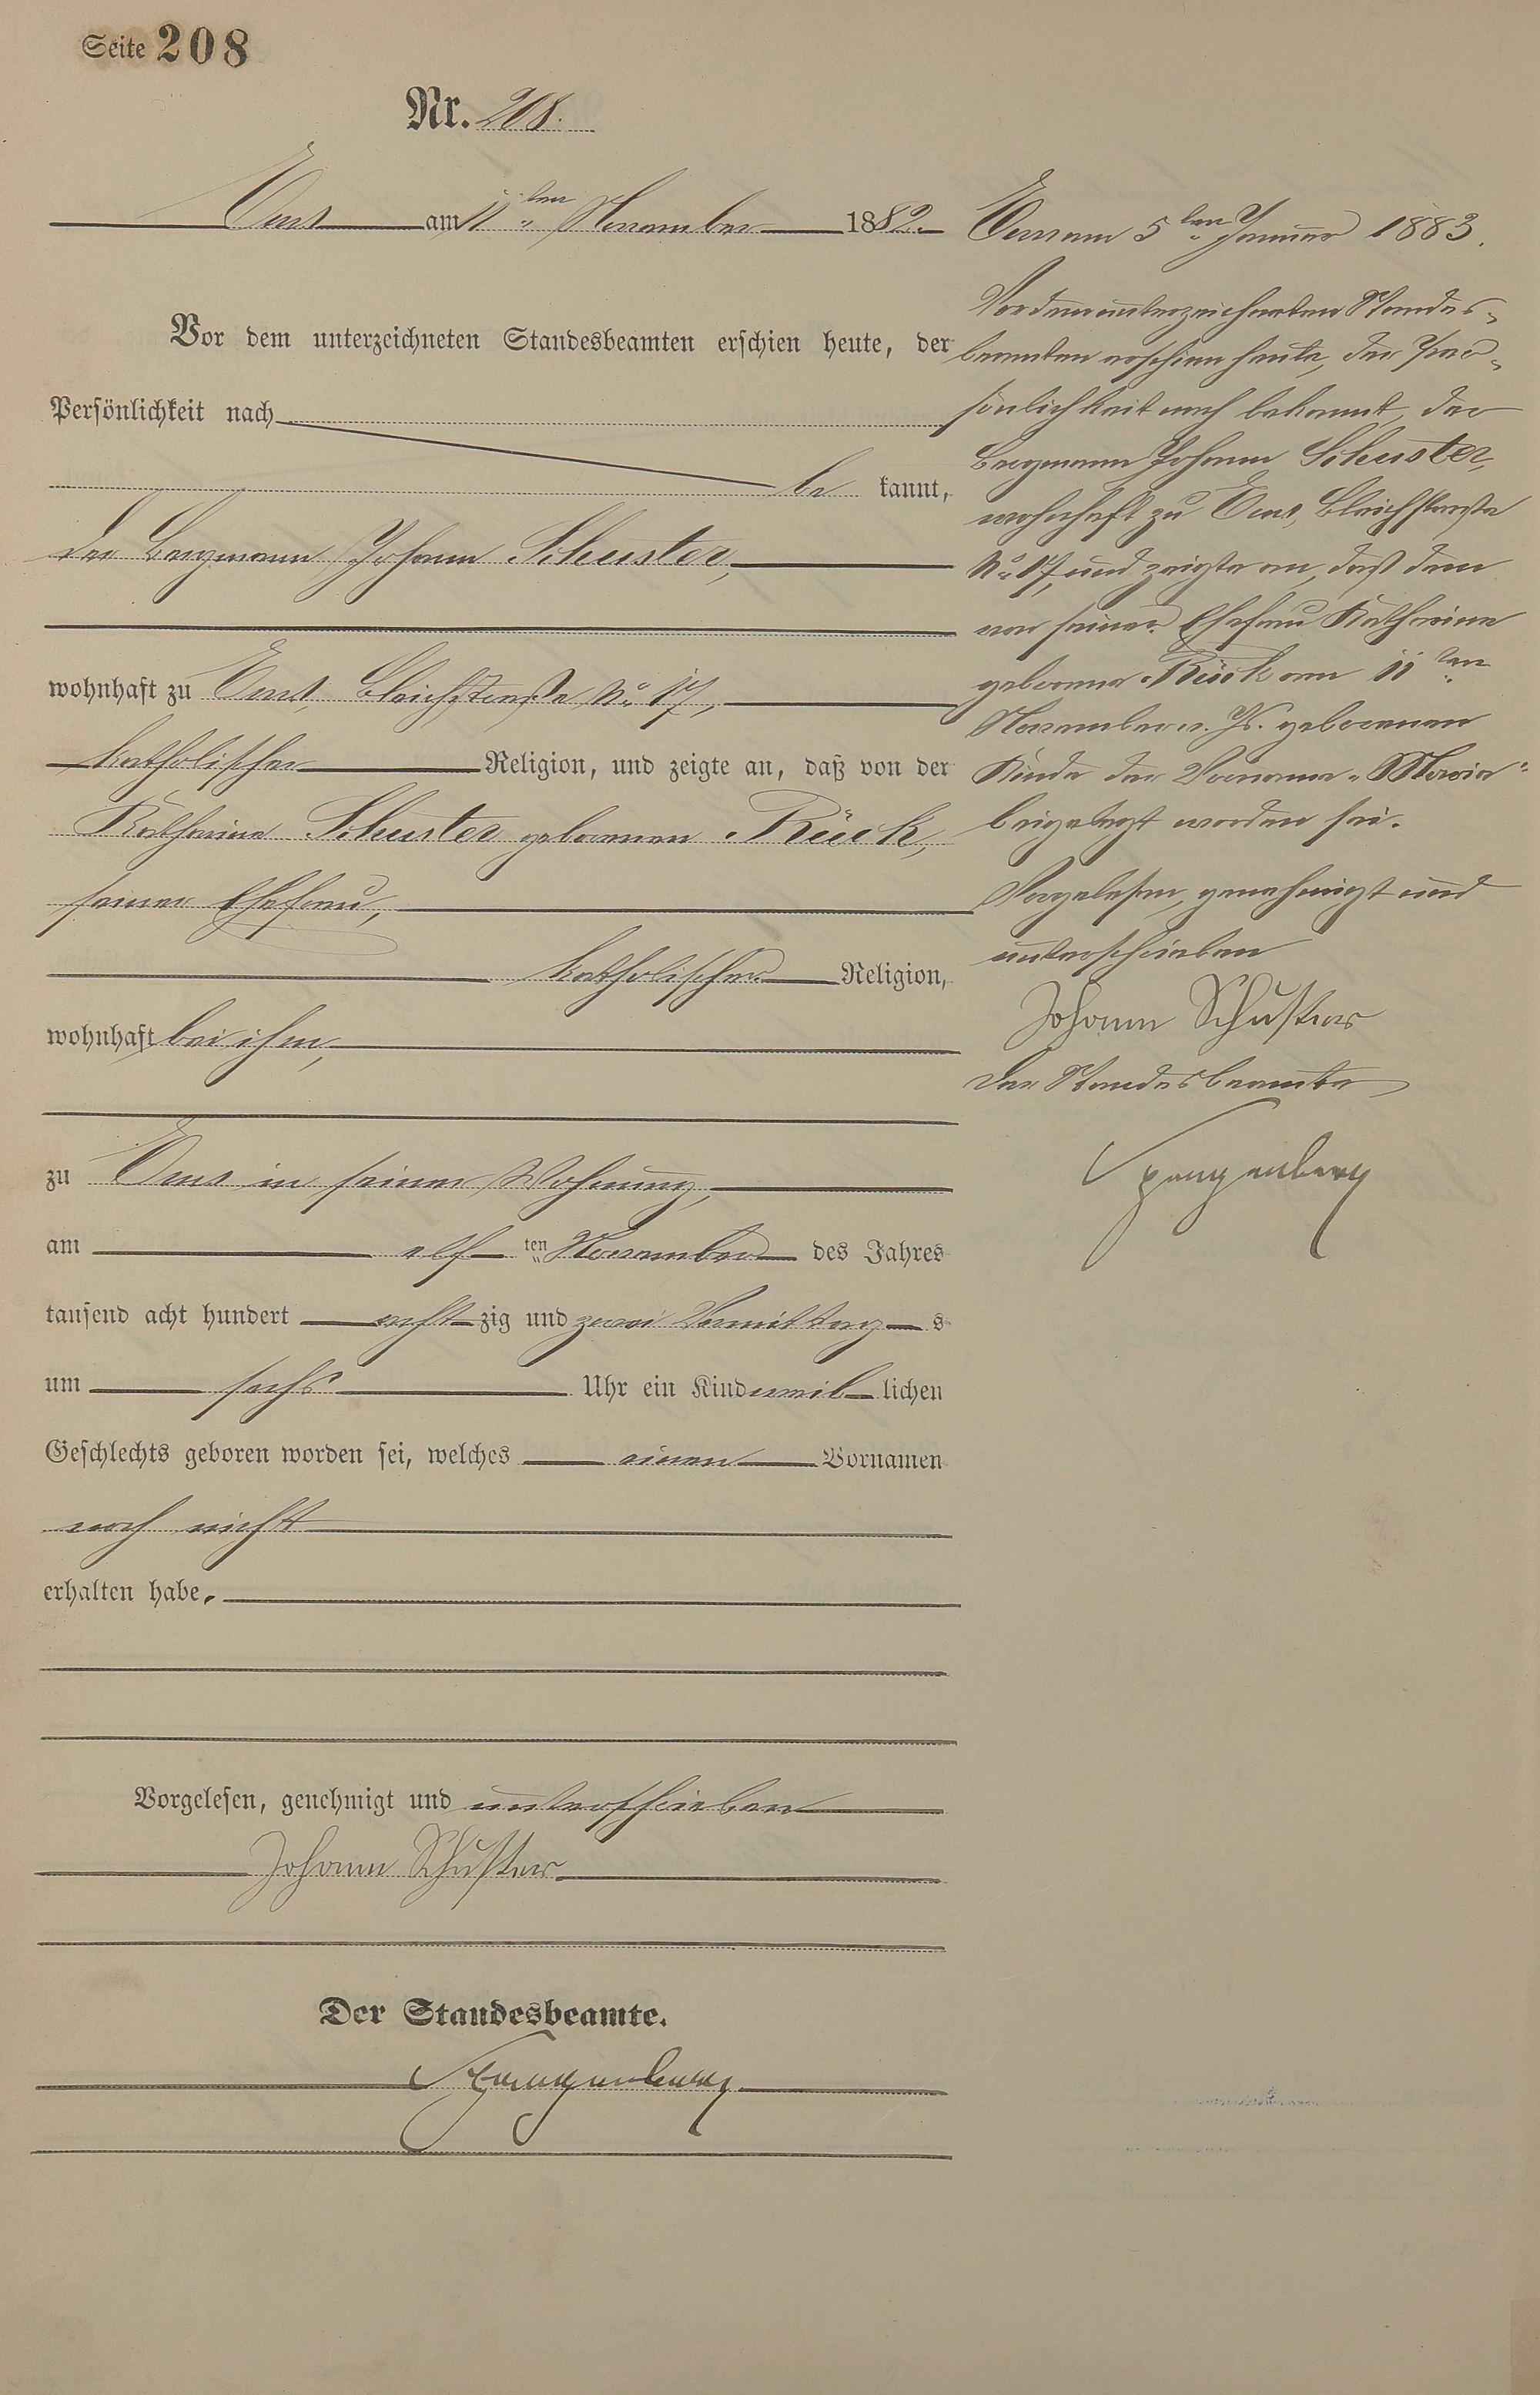 Seite 208
Nr. 208.
Ems am 11ten November 1882.
Vor dem unterzeichneten Standesbeamten erschien heute, der
Persönlichkeit nach
be kannt,
der Bergmann Johann Schuster,
wohnhaft zu Ems, Bleichstraße No 17,
katholischer Religion, und zeigte an, daß von der
Katharina Schuster geborenen Rück,
seiner Ehefrau,
katholischer Religion,
wohnhaft bei ihm,
zu Ems in seiner Wohnung,
am elf ten November des Jahres
tausend acht hundert acht zig und zwei Vormittag s
um sechs Uhr ein Kind weib lichen
Geschlechts geboren worden sei, welches einen Vornamen
noch nicht
erhalten habe.
Vorgelesen, genehmigt und unterschrieben
Johann Schuster
Der Standesbeamte.
Spangenberg
Ems am 5ten Januar 1883.
Vor dem unterzeichneten Standes-
beamten erschien heute, der Per-
sönlichkeit nach bekannt, der
Bergmann Johann Schuster,
wohnhaft zu Ems, Bleichstraße
No 17, und zeigte an, daß dem
von seiner Ehefrau Katharina
geborene Rück am 11ten
November v. Js. geborenen
Kinde der Vorname "Maria"
beigelegt worden sei.
Vorgelesen, genehmigt und
unterschrieben
Johann Schuster
Der Standesbeamte
Spangenberg